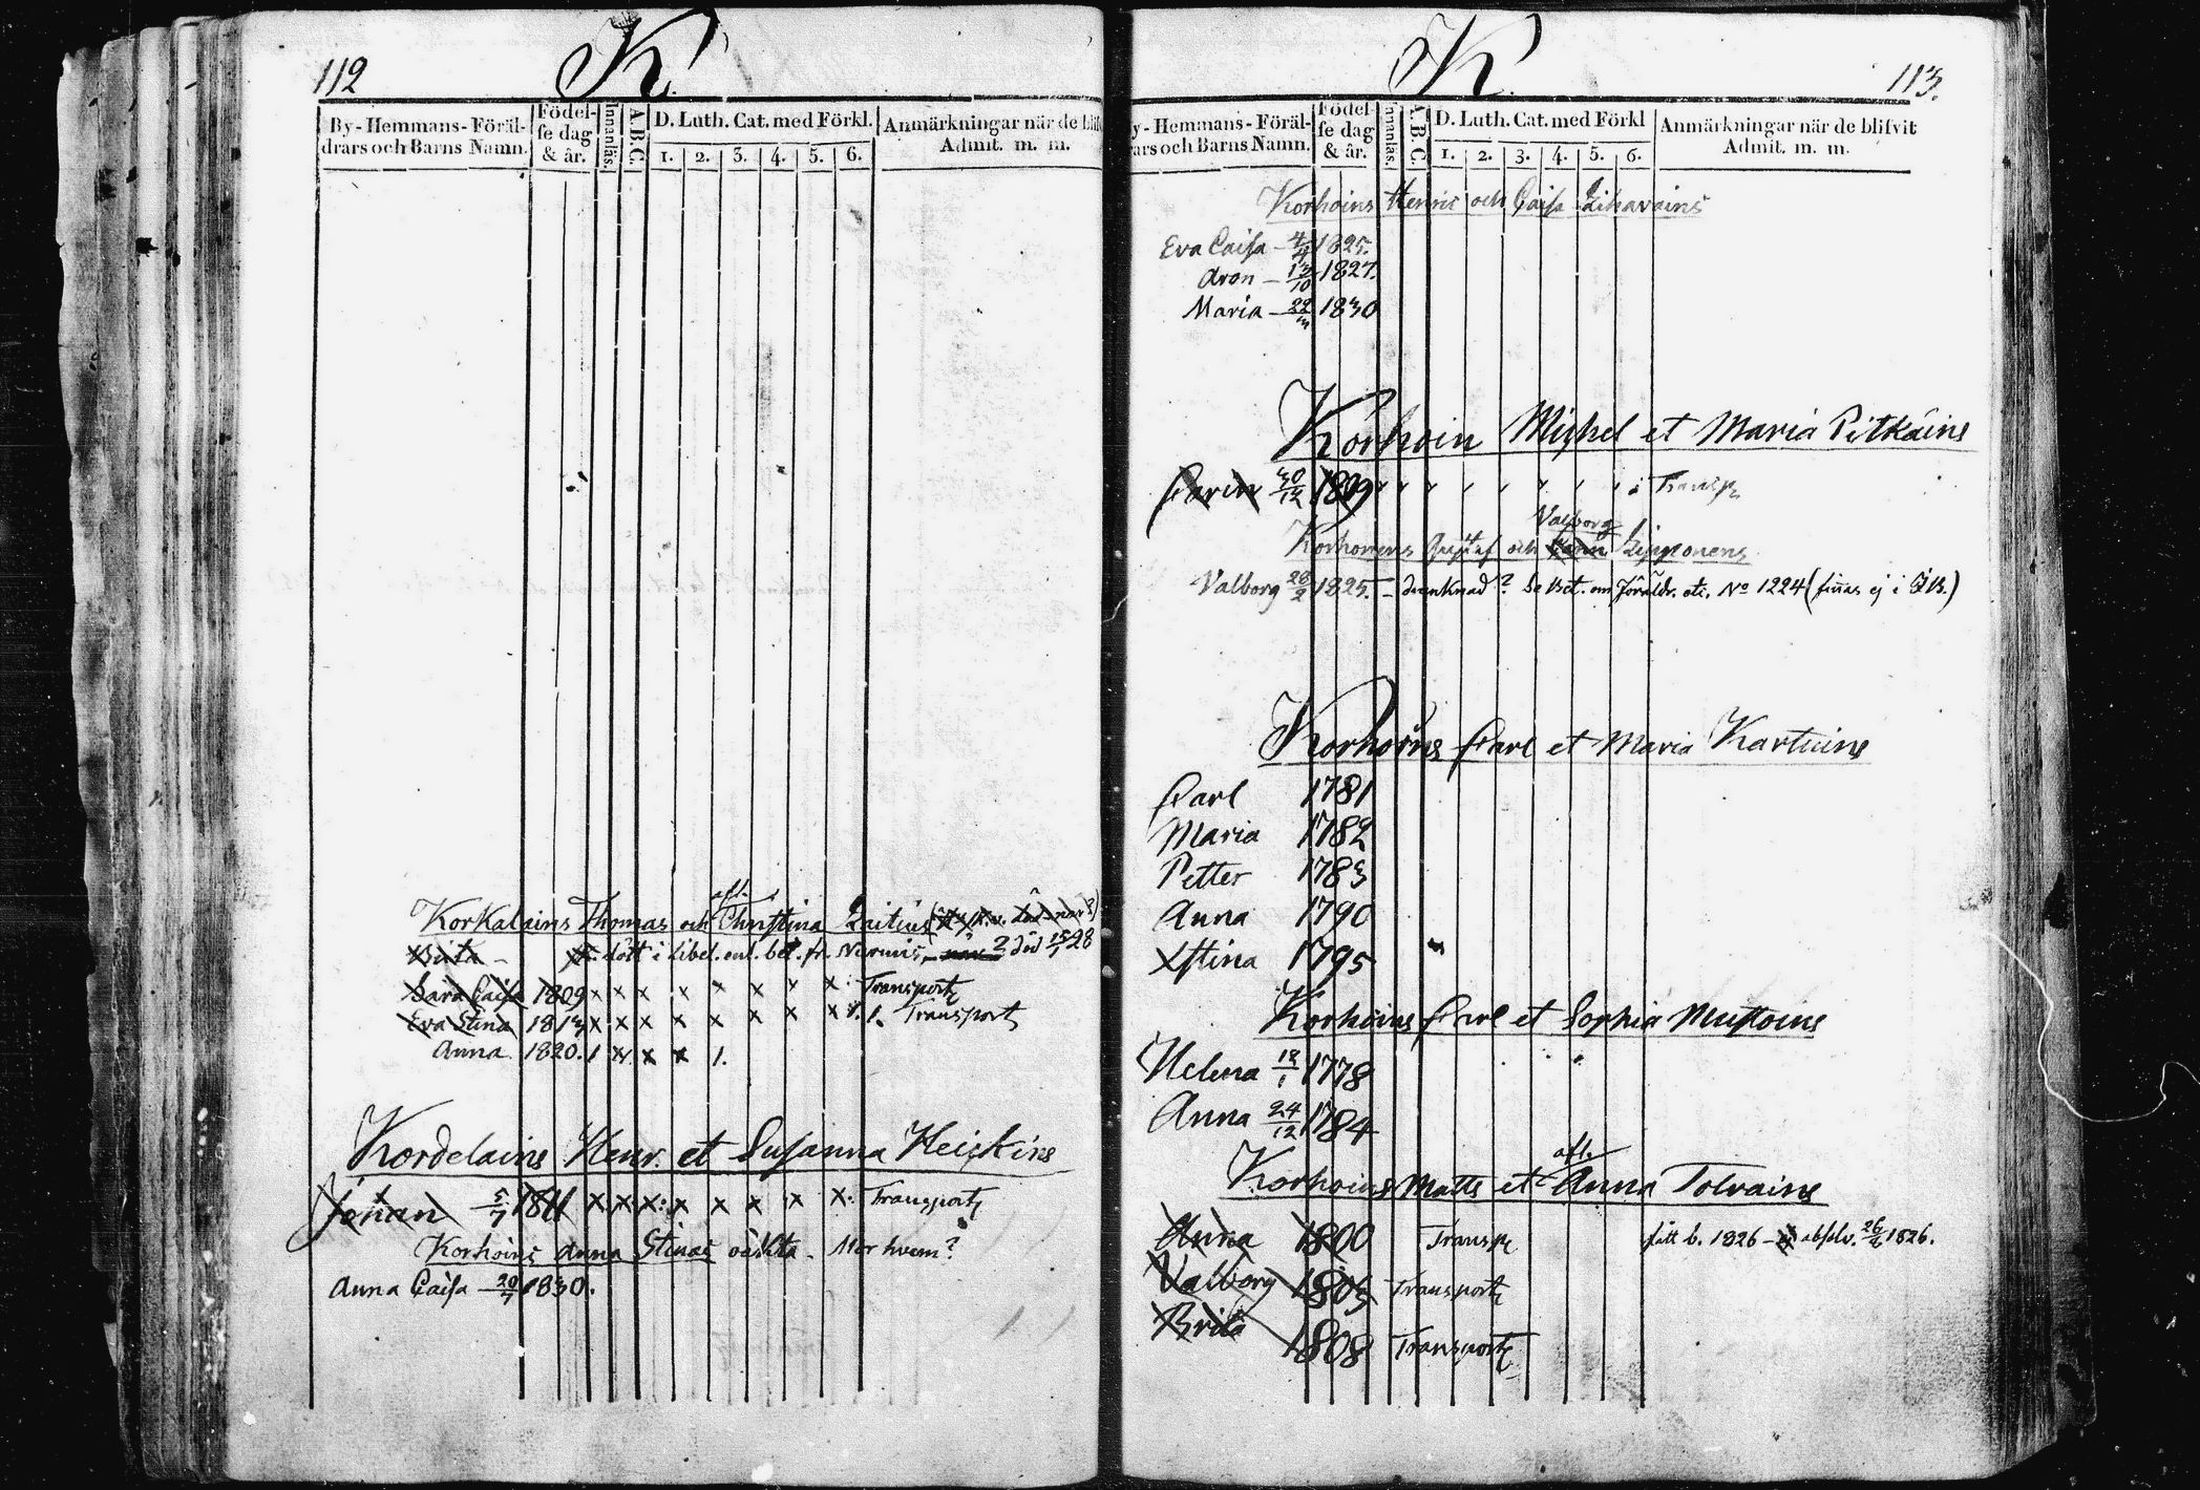 112
K.
By-Hemmans-Föräl-
drars och Barns Namn.
Födel-
se dag
& år.
Innanläs.
A.B.C.
D. Luth. Cat. med Förkl.
1. 2. 3. 4. 5. 6.
Anmärkningar när de blif
Admit. m. m.
afl.
Korkalains Thomas och Christina
Brita - född i Libel. enl. bet. fr. Nurmis, död 15/1 28
Sara Caisa 1809 x x x x x x x x Transport
Eva Stina 1813 x x x x x x x x 1. Transport
Anna 1820. 1 x x x 1.
Kordelains Henr. et Susanna Heiskins
Johan 5/7 1811 x x x: x x x x x: Transport
Korhoins Anna Stinas oächta - Mor hvem?
Anna Caisa - 20/7 1830.
K.
113.
y-Hemmans-Föräl-
ars och Barns Namn.
Födel-
se dag
& år.
Innanläs.
A.B.C.
D. Luth. Cat. med Förkl
1. 2. 3. 4. 5. 6.
Anmärkningar när de blifvit
Admit. m. m.
Korhoins Henric och Caisa Lihavains
Eva Caisa - 4/4 1825.
Aron - 13/10 1827.
Maria - 22/m 1830
Korhoin Michel et Maria Pitkäins
Carin 30/12 1809 Transp
Valborg
Korhonens Gustaf och Carin Lipponens
Valborg 28/2 1825. - Se om Föräldr. etc. No 1224 (finnas ej i)
Korhoins Carl et Maria Kartuins
Carl 1781
Maria 1782
Petter 1783
Anna 1790
Xstina 1795
Korhoins Carl et Sophia Mustoins
Helena 18/1 1778
Anna 24/12 1784
afl.
Korhoins Matts et Anna Tolvains
Anna 1800 Transp fått b. 1826 - absolv. 26/2 1826.
Valborg 1803 Transport
Brita 1808 Transport